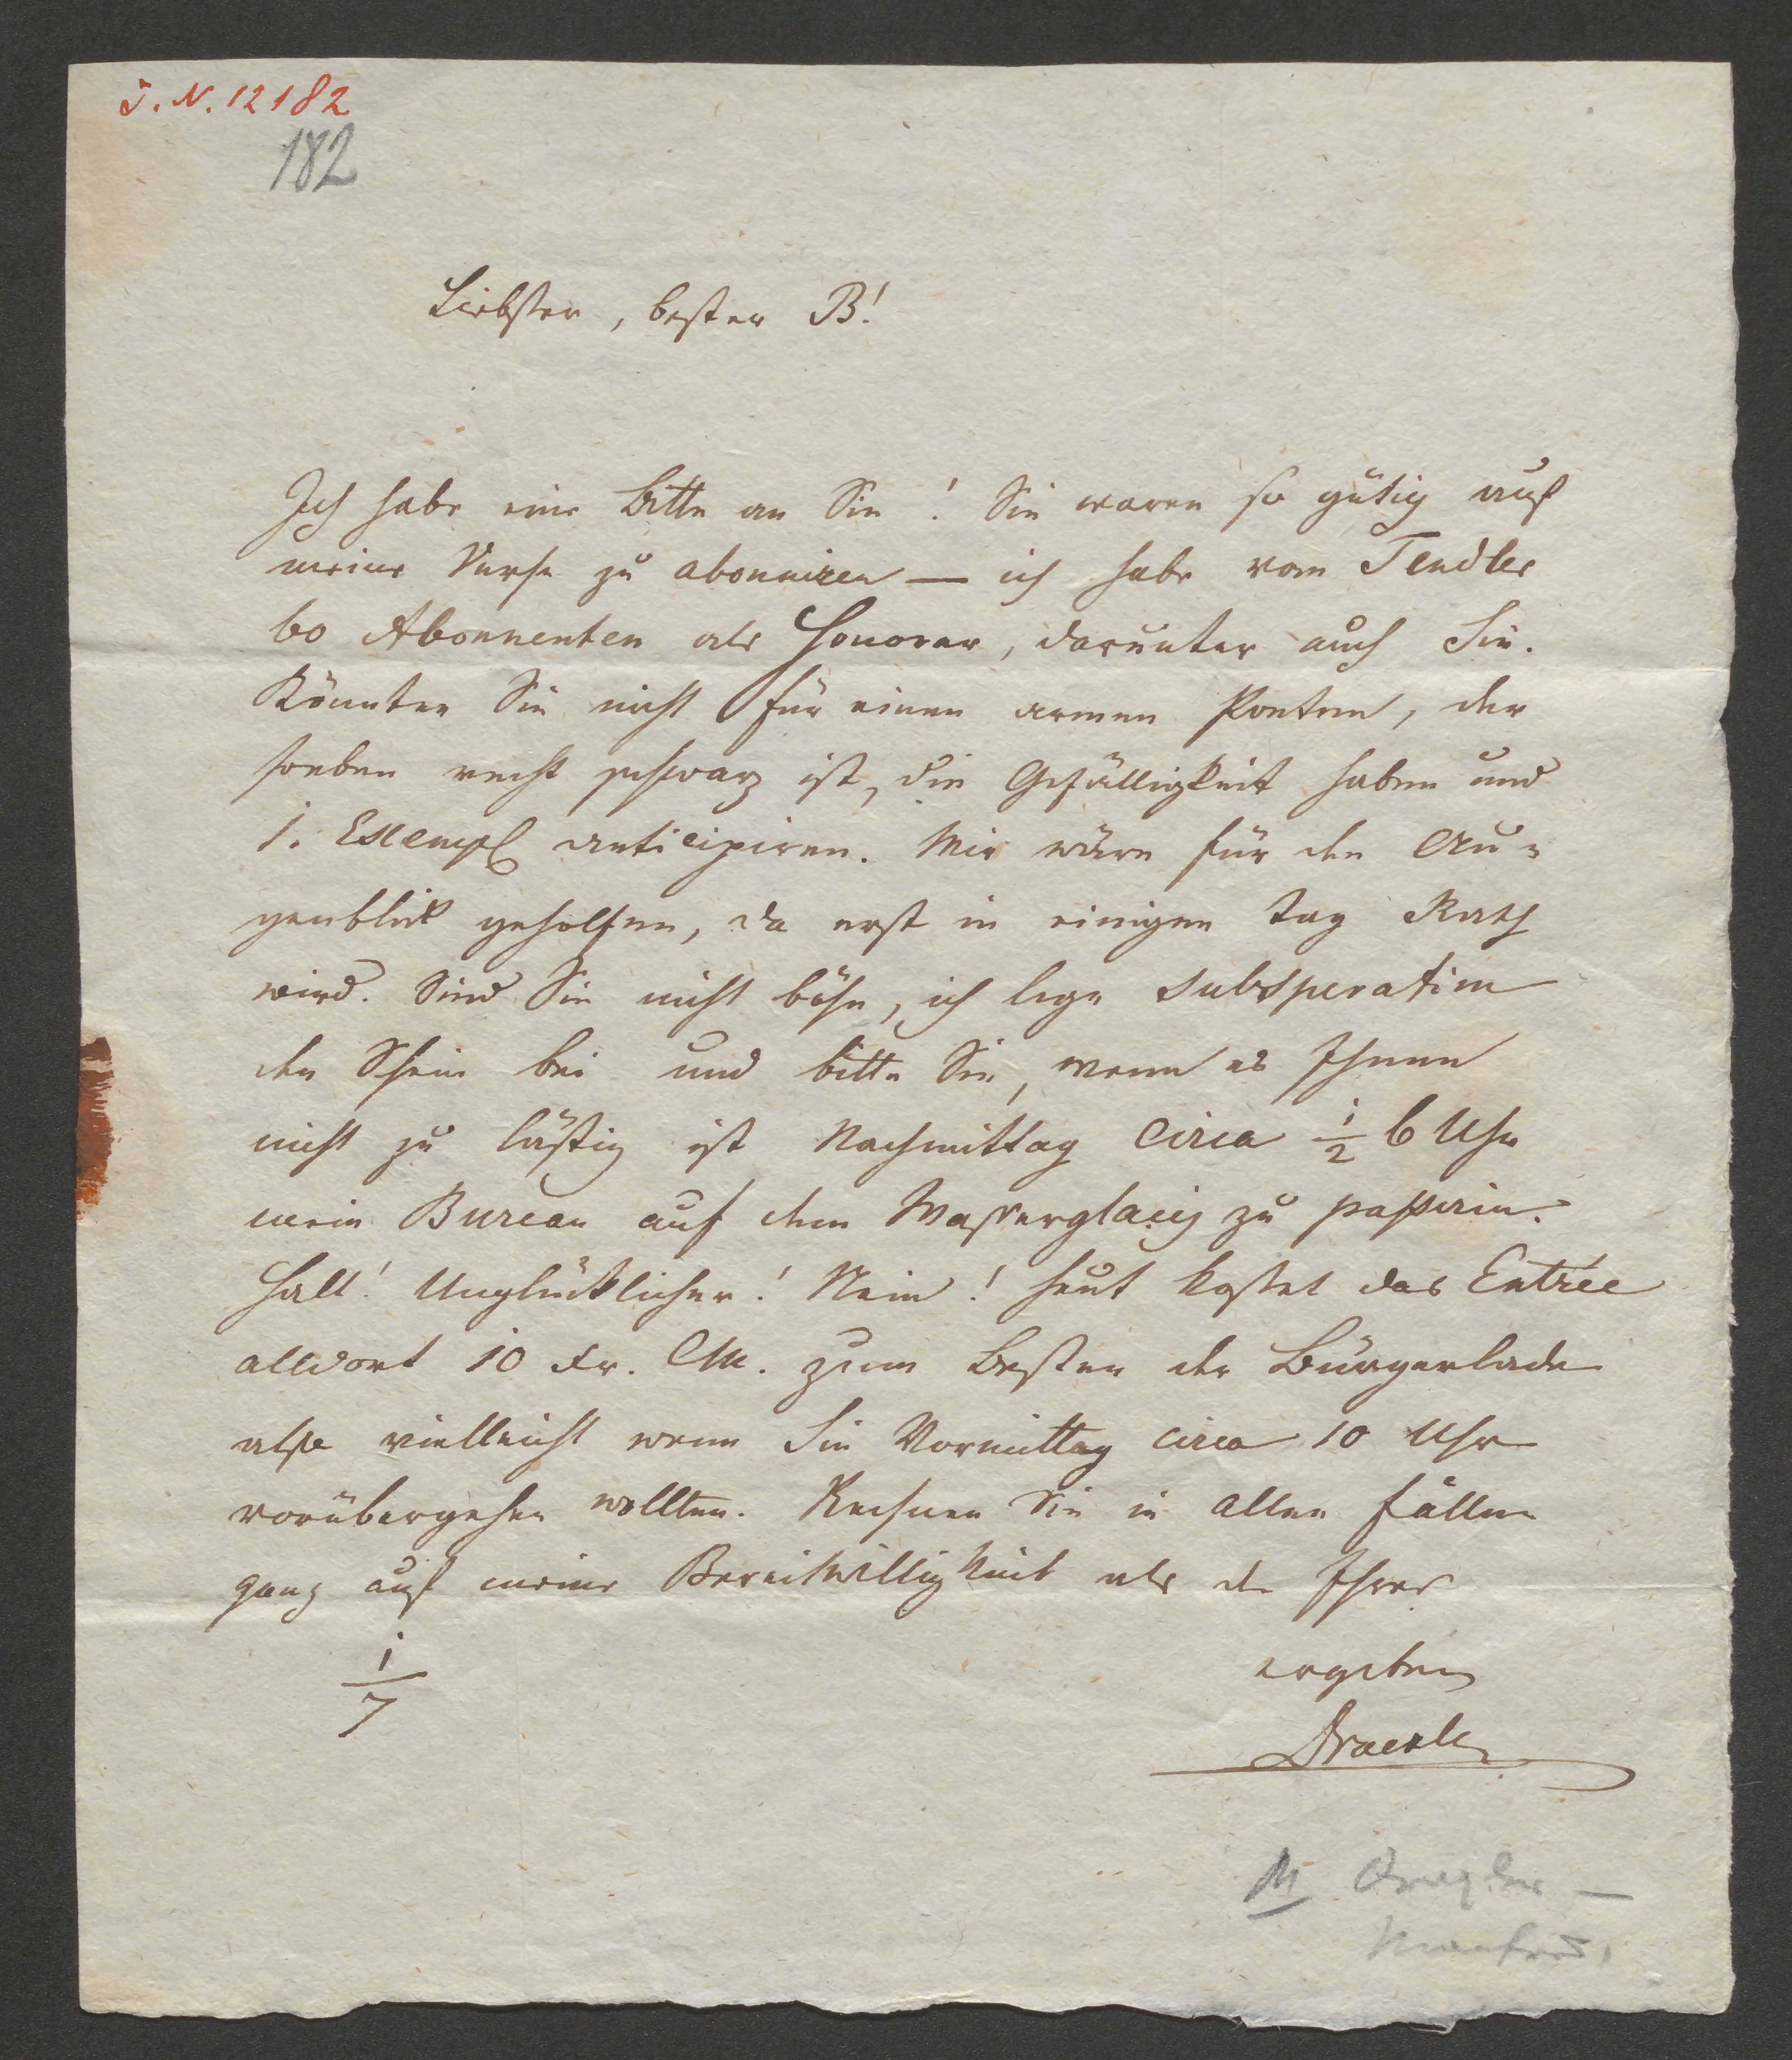 I. N. 12182
182
Liebster, bester B!
Ich habe eine Bitte an Sie! Sie waren so gütig auf
meine Verse zu abonniren — ich habe vom Tendler
60 Abonnenten als Honorar, darunter auch Sie.
Könnten Sie nicht für einen armen Poeten, der
soeben recht schwarz ist, die Gefälligkeit haben und
1. Exempl anticipiren. Mir wäre für den Au-
genblick geholfen, da erst in einigen Tag Rath
wird. Sind Sie nicht böse, ich lege subsperatim
den Schein bei und bitte Sie, wenn es Ihnen
nicht zu lästig ist Nachmittag circa ½ 6 Uhr
mein Bureau auf dem Wasserglacis zu passiren.
Halt! Unglücklicher! Nein! heut kostet das Entrée
alldort 10 xr. CM. zum Besten der Bürgerlade
also vielleicht wenn Sie Vormittag circa 10 Uhr
vorübergehen wollten. Rechnen Sie in allen Fällen
ganz auf meine Bereitwilligkeit als der Ihres
1/7
ergeben
Draexler
M Draexler —
Manfred.